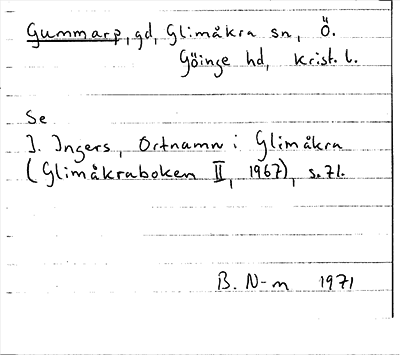 Gummarp, gd, Glimåkra sn, Ö.
Göinge hd, Krist. l.
Se
I. Ingers, Ortnamn i Glimåkra
(Glimåkraboken II, 1967), s. 71.
B. N-m 1971